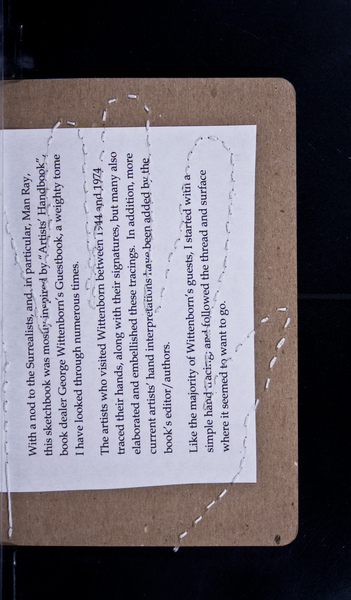 With a nod to the Surrealists, and in particular, Man Ray,
this sketchbook was mostly inspired by "Artists' Handbook",
book dealer George Wittenborn's Guestbook, a weighty tome
I have looked through numerous times.
The artists who visited Wittenborn between 1944 and 1974
traced their hands, along with their signatures, but many also
elaborated and embellished these tracings. In addition, more
current artists' hand interpretations have been added by the
book's editor/authors.
Like the majority of Wittenborn's guests, I started with a
simple hand tracing and followed the thread and surface
where it seemed to want to go.